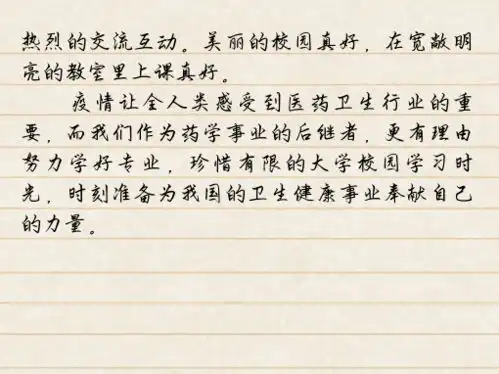 热烈的交流互动。美丽的校园真好，在宽敞明
亮的教室里上课真好。
疫情让全人类感受到医药卫生行业的重
要，而我们作为药学事业的后继者，更有理由
努力学好专业，珍惜有限的大学校园学习时
光，时刻准备为我国的卫生健康事业奉献自己
的力量。